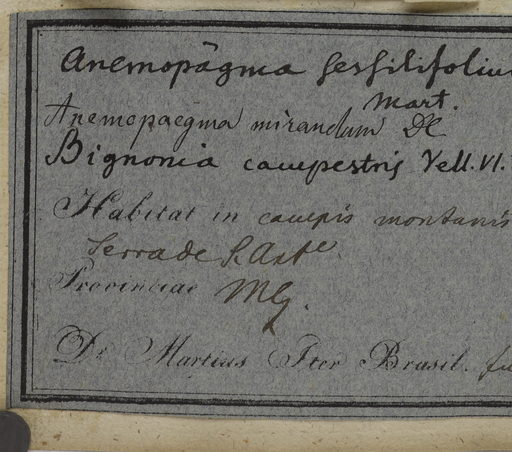 Anemopägma sessilifolium
Mart.
Anemopaegma mirandum DC
Bignonia campestris Vell. VI.
Habitat in campis montanis
Serra de S. Ant.e
Provinciae MG.
Dr. Martius Iter Brasil.